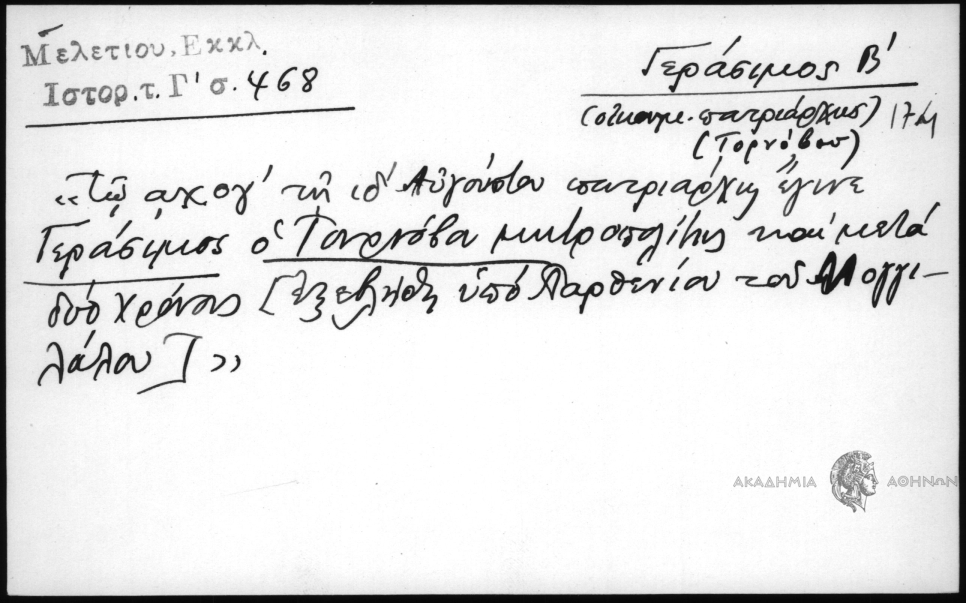 Μελετίου, Εκκλ.
Ιστορ. τ. Γ' σ. 468
Γεράσιμος Β'
(οἰκουμ. πατριάρχης)
(Τορνόβου)
«Τῷ αχογ' τῇ ιδ' Αὐγούστου πατριάρχης ἔγινε
Γεράσιμος ὁ Τουρνόβου μητροπολίτης καὶ μετὰ
δύο χρόνους [ἐξεβλήθη ὑπό Παρθενίου τοῦ Μογγι-
λάλου]»
ΑΚΑΔΗΜΙΑ ΑΘΗΝΩΝ